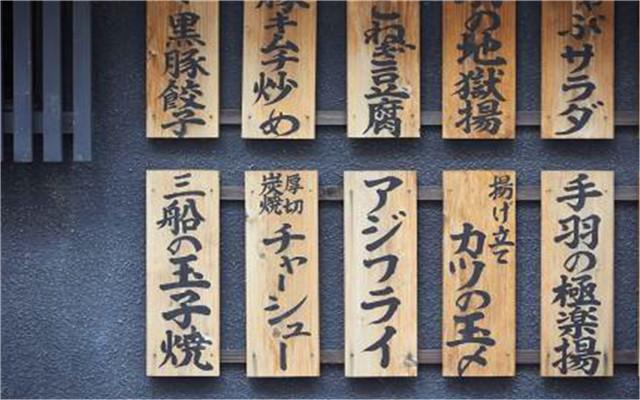 ぶサラダ
の地獄揚
ねぎ豆腐
豚キムチ炒め
黒豚餃子
手羽の極楽揚
揚げ立て
カツの玉〆
アジフライ
厚切
炭焼
チャーシュー
三船の玉子焼